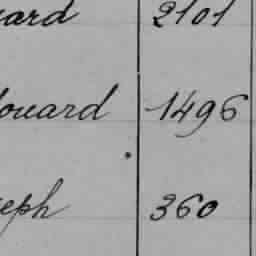 ard 2101
ouard 1496
eph 360